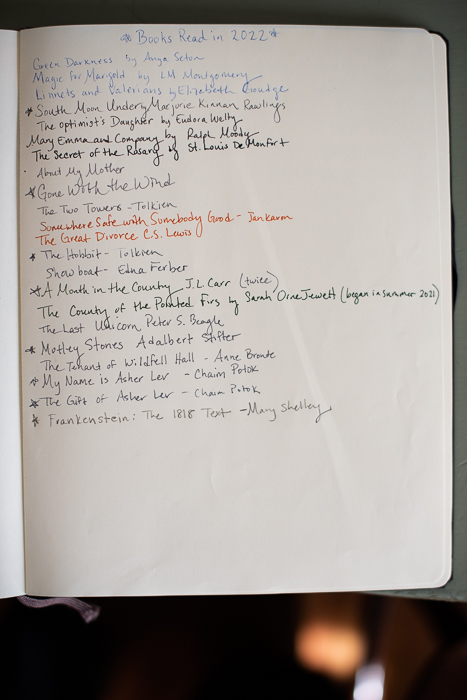 * Books Read in 2022 *
Green Darkness by Anya Seton
Magic for Marigold by LM Montgomery
Linnets and Valerians by Elizabeth Goudge
* South Moon Under Marjorie Kinnan Rawlings
The Optimist's Daughter by Eudora Welty
Mary Emma and Company by Ralph Moody
The Secret of the Rosary by St. Louis De Monfort
About My Mother
* Gone With the Wind
The Two Towers - Tolkien
Somewhere Safe with Somebody Good - Jan Karon
The Great Divorce C.S. Lewis
* The Hobbit - Tolkien
Showboat - Edna Ferber
* A Month in the Country J.L. Carr (twice)
The County of the Pointed Firs by Sarah Orne Jewett (began in Summer 2021)
The Last Unicorn Peter S. Beagle
* Motley Stones Adalbert Stifter
The Tenant of Wildfell Hall - Anne Bronte
* My Name is Asher Lev - Chaim Potok
* The Gift of Asher Lev - Chaim Potok
* Frankenstein: The 1818 Text - Mary Shelley